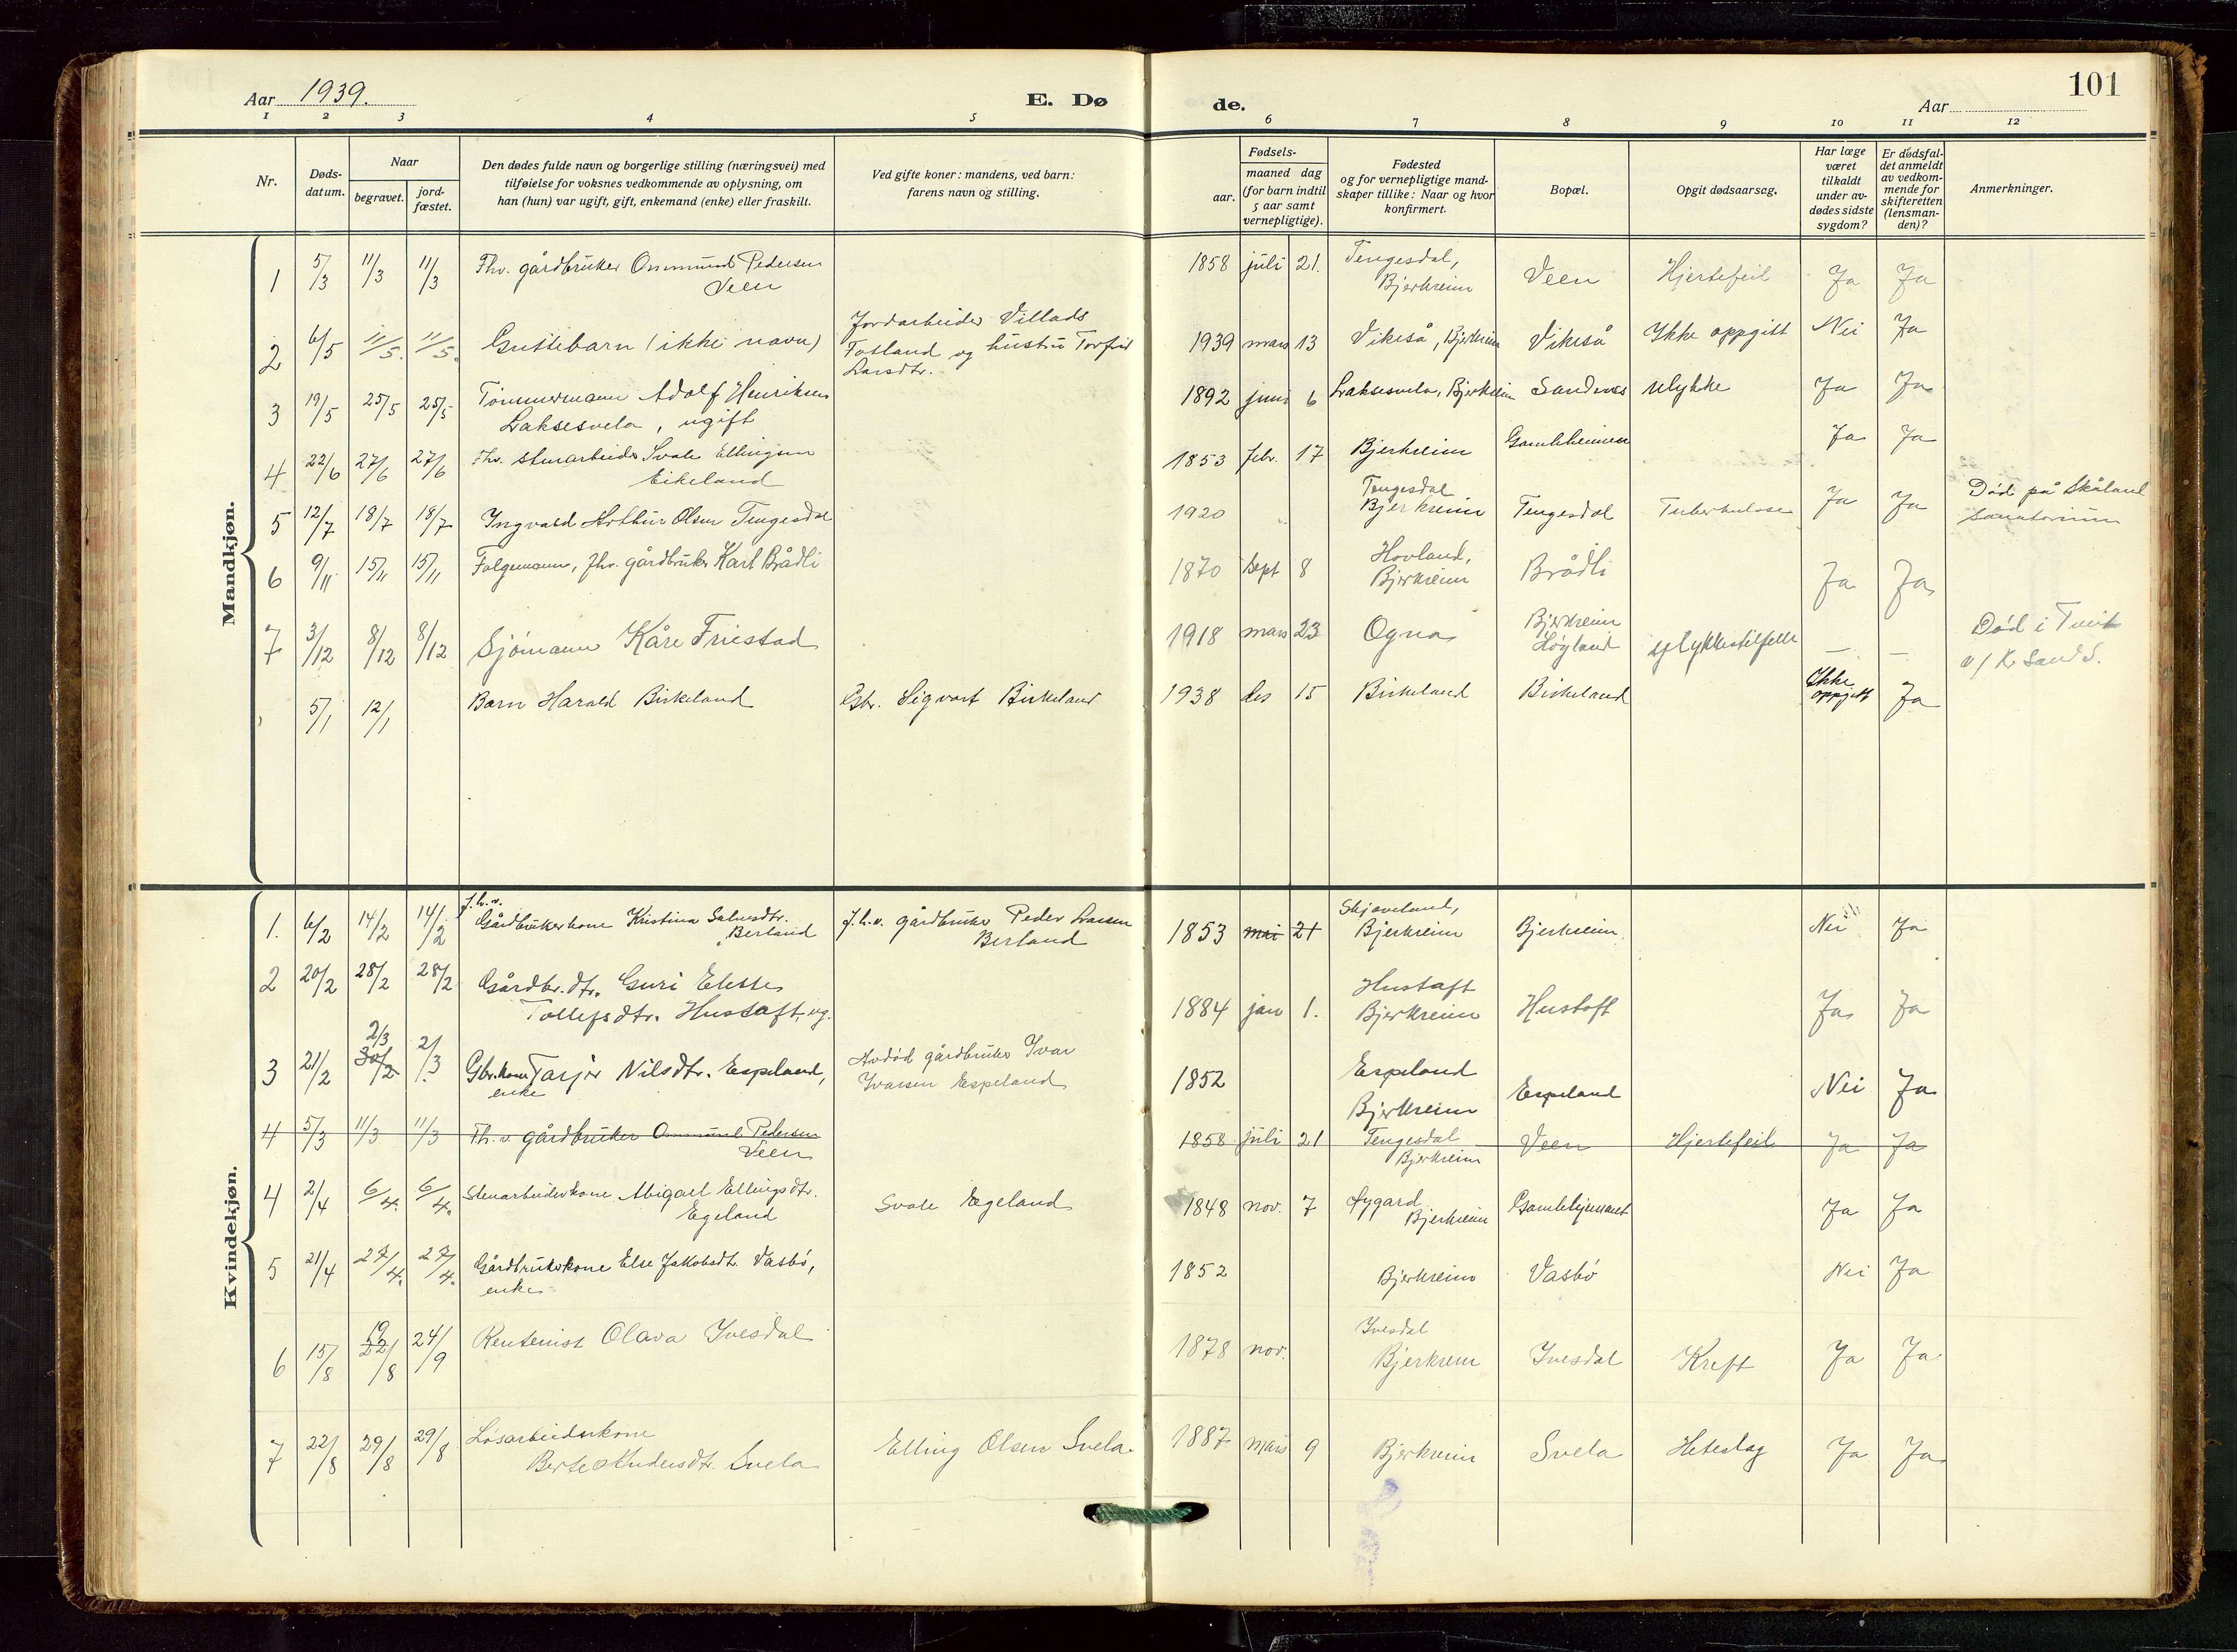 Aar 1939.
E. Dø
de.
Aar
101
1 2 3 4 5 6 7 8 9 10 11 12
Nr.
Døds-
datum.
Naar
begravet.
jord-
fæstet.
Den dødes fulde navn og borgerlige stilling (næringsvei) med
tilføielse for voksnes vedkommende av oplysning, om
han (hun) var ugift, gift, enkemand (enke) eller fraskilt.
Ved gifte koner: mandens, ved barn:
farens navn og stilling.
Fødsels-
aar.
maaned dag
(for barn indtil
5 aar samt
vernepligtige).
Fødested
og for vernepligtige mand-
skaper tillike: Naar og hvor
konfirmert.
Bopæl.
Opgit dødsaarsag.
Har læge
været
tilkaldt
under av-
dødes sidste
sygdom?
Er dødsfal-
det anmeldt
av vedkom-
mende for
skifteretten
(lensman-
den)?
Anmerkninger.
Mandkjøn.
1 5/3 11/3 11/3 Fhv. gårdbruker Ommund Pedersen
Veen
1858 juli 21. Tengesdal,
Bjerkreim Veen Hjertefeil Ja Ja
2 6/5 11/5. 11/5. Guttebarn (ikke navn)
Jordarbeider Villads
Fotland og hustru Torfrid
Larsdtr.
1939 mars 13 Vikeså, Bjerkreim Vikeså Ikke oppgitt Nei Ja
3 19/5 25/5 25/5 Tømmermann Adolf Henriksen
Laksesvela, ugift
1892 juni 6 Laksesvela, Bjerkreim Sandnes Ulykke Ja Ja
4 22/6 27/6 27/6 Fhv. stenarbeider Svale Ellingsen
Eikeland
1853 febr. 17 Bjerkreim Gamleheimen Ja Ja
5 12/7 18/7 18/7 Ingvald Arthur Olsen Tengesdal
1920 Tengesdal
Bjerkreim Tengesdal Tuberkulose Ja Ja Død på Skåland
Sanatorium
6 9/11 15/11 15/11 Følgemann, fhv. gårdbruker Karl Brådli
1870 Sept 8 Hovland,
Bjerkreim Brådli Ja Ja
7 3/12 8/12 8/12 Sjømann Kåre Friestad
1918 mars 23 Ogna Bjerkreim
Høyland Ulykkestilfelle — — Død i Tveit
v/ Kr. Sand S.
5/1 12/1 Barn Harald Birkeland Gbr. Sigvart Birkeland
1938 des 15 Birkeland Birkeland Ikke
oppgitt Ja
Kvindekjøn.
1. 6/2 14/2 14/2 f.h.v.
Gårdbrukerkone Kristina Salvesdtr.
Berland
f.h.v. gårdbruker Peder Larsen
Berland
1853 mai 21 Skjæveland,
Bjerkreim Bjerkreim Nei Ja
2 20/2 28/2 28/2 Gårdbr.dtr. Guri Eleste
Tollefsdtr. Hustoft, ug.
1884 jan 1. Hustoft
Bjerkreim Hustoft Ja Ja
3 21/2 2/3 30/2 2/3. Gbr.kone Tarjer Nilsdtr. Espeland,
enke
Avdød gårdbruker Ivar
Ivarsen Espeland
1852 Espeland
Bjerkreim Espeland Nei Ja
4 5/3 11/3 11/3 Fh.v. gårdbruker Ommund Pedersen
Veen
1858 juli 21 Tengesdal
Bjerkreim Veen Hjertefeil Ja Ja
4 2/4 6/4. 6/4. Stenarbeiderkone Abigael Ellingsdtr.
Egeland
Svale Egeland
1848 nov. 7 Øygard
Bjerkreim Gamlehjemmet Ja Ja
5 21/4 27/4. 27/4. Gårdbrukerkone Else Jakobsdtr. Vasbø,
enke
1852 Bjerkreim Vasbø Nei Ja
6 15/8 19 22/8 24/9 Rentenist Olava Ivesdal
1878 nov. Ivesdal
Bjerkreim Ivesdal Kreft Ja Ja
7 22/8 29/8 29/8 Løsarbeiderkone
Berte Andersdtr. Svela Elling Olsen Svela.
1887 mars 9 Bjerkreim Svela Heteslag Ja Ja